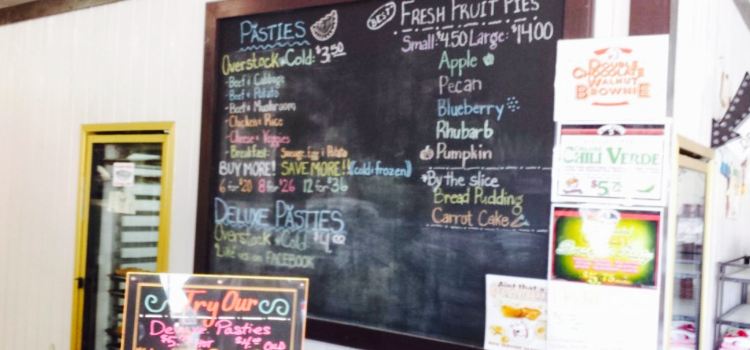 PASTIES
Overstock & Cold: $3.50
- Beef & Cabbage
- Beef & Potato
- Beef & Mushroom
- Chicken & Rice
- Cheese & Veggies
- Breakfast: Sausage, Egg & Potato
BUY MORE! SAVE MORE!! (cold & frozen)
6 for $20 8 for $26 12 for $36
DELUXE PASTIES
Overstock & Cold $4.00
"Like us on FACEBOOK
BEST FRESH FRUIT PIES
Small: $4.50 Large: $14.00
Apple
Pecan
Blueberry
Rhubarb
Pumpkin
*By the slice
Bread Pudding
Carrot Cake
DOUBLE
CHOCOLATE
WALNUT
BROWNIE
CHILI VERDE
$5.75
$5.75
Aint that a
Try Our
Deluxe Pasties
HOT COLD